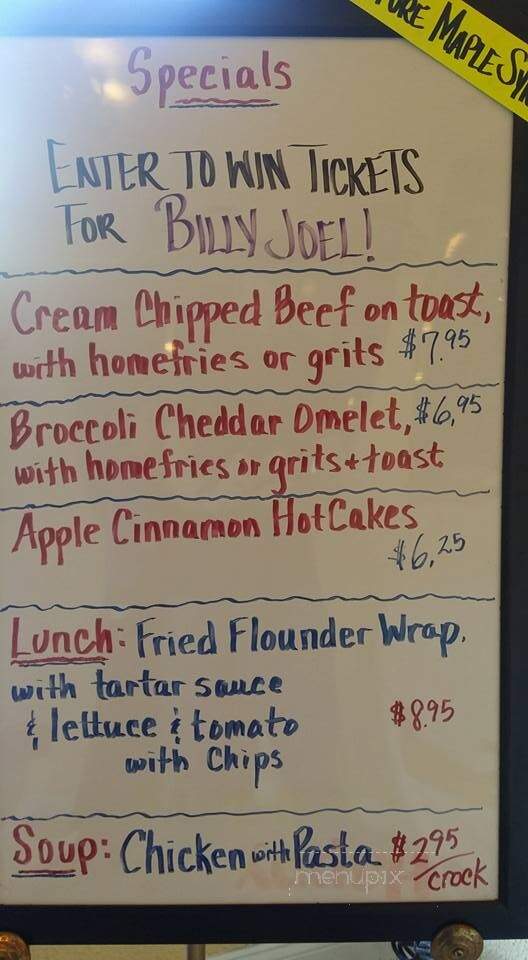 PURE MAPLE SY
Specials
ENTER TO WIN TICKETS
FOR BILLY JOEL!
Cream Chipped Beef on toast,
with homefries or grits $7.95
Broccoli Cheddar Omelet, $6.95
with homefries or grits + toast
Apple Cinnamon HotCakes
$6.25
Lunch: Fried Flounder Wrap.
with tartar sauce
& lettuce & tomato $8.95
with Chips
Soup: Chicken with Pasta $2.95/crock
menupix